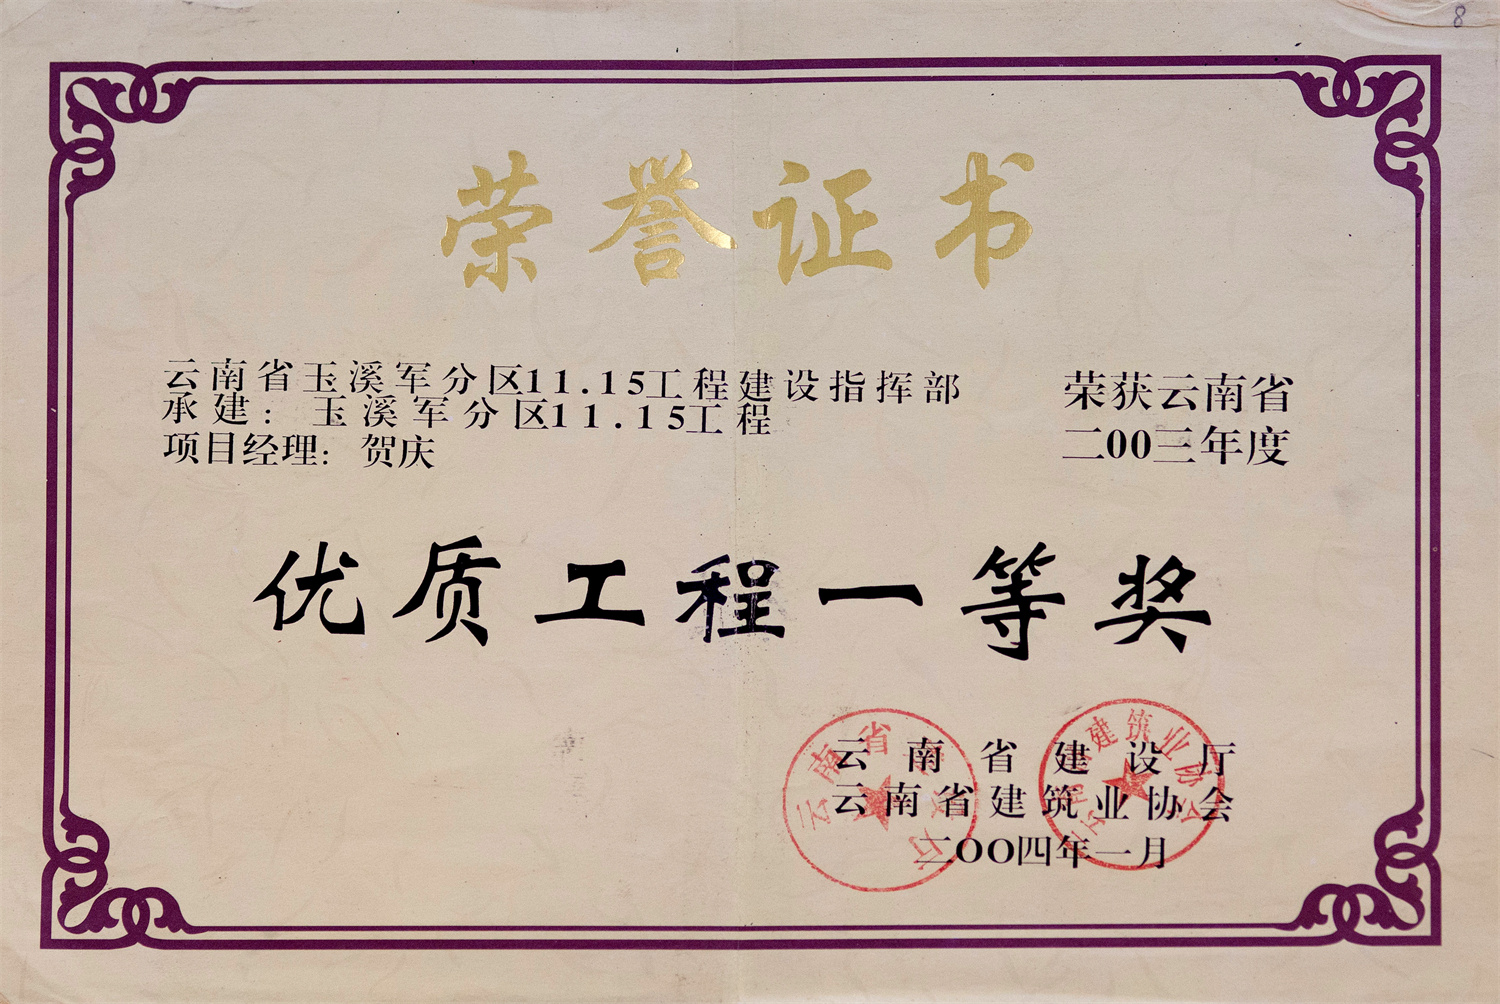 8
荣誉证书
云南省玉溪军分区11.15工程建设指挥部
承建：玉溪军分区11.15工程
项目经理：贺庆
荣获云南省
二00三年度
优质工程一等奖
云南省建设厅
云南省建筑业协会
二OO四年一月